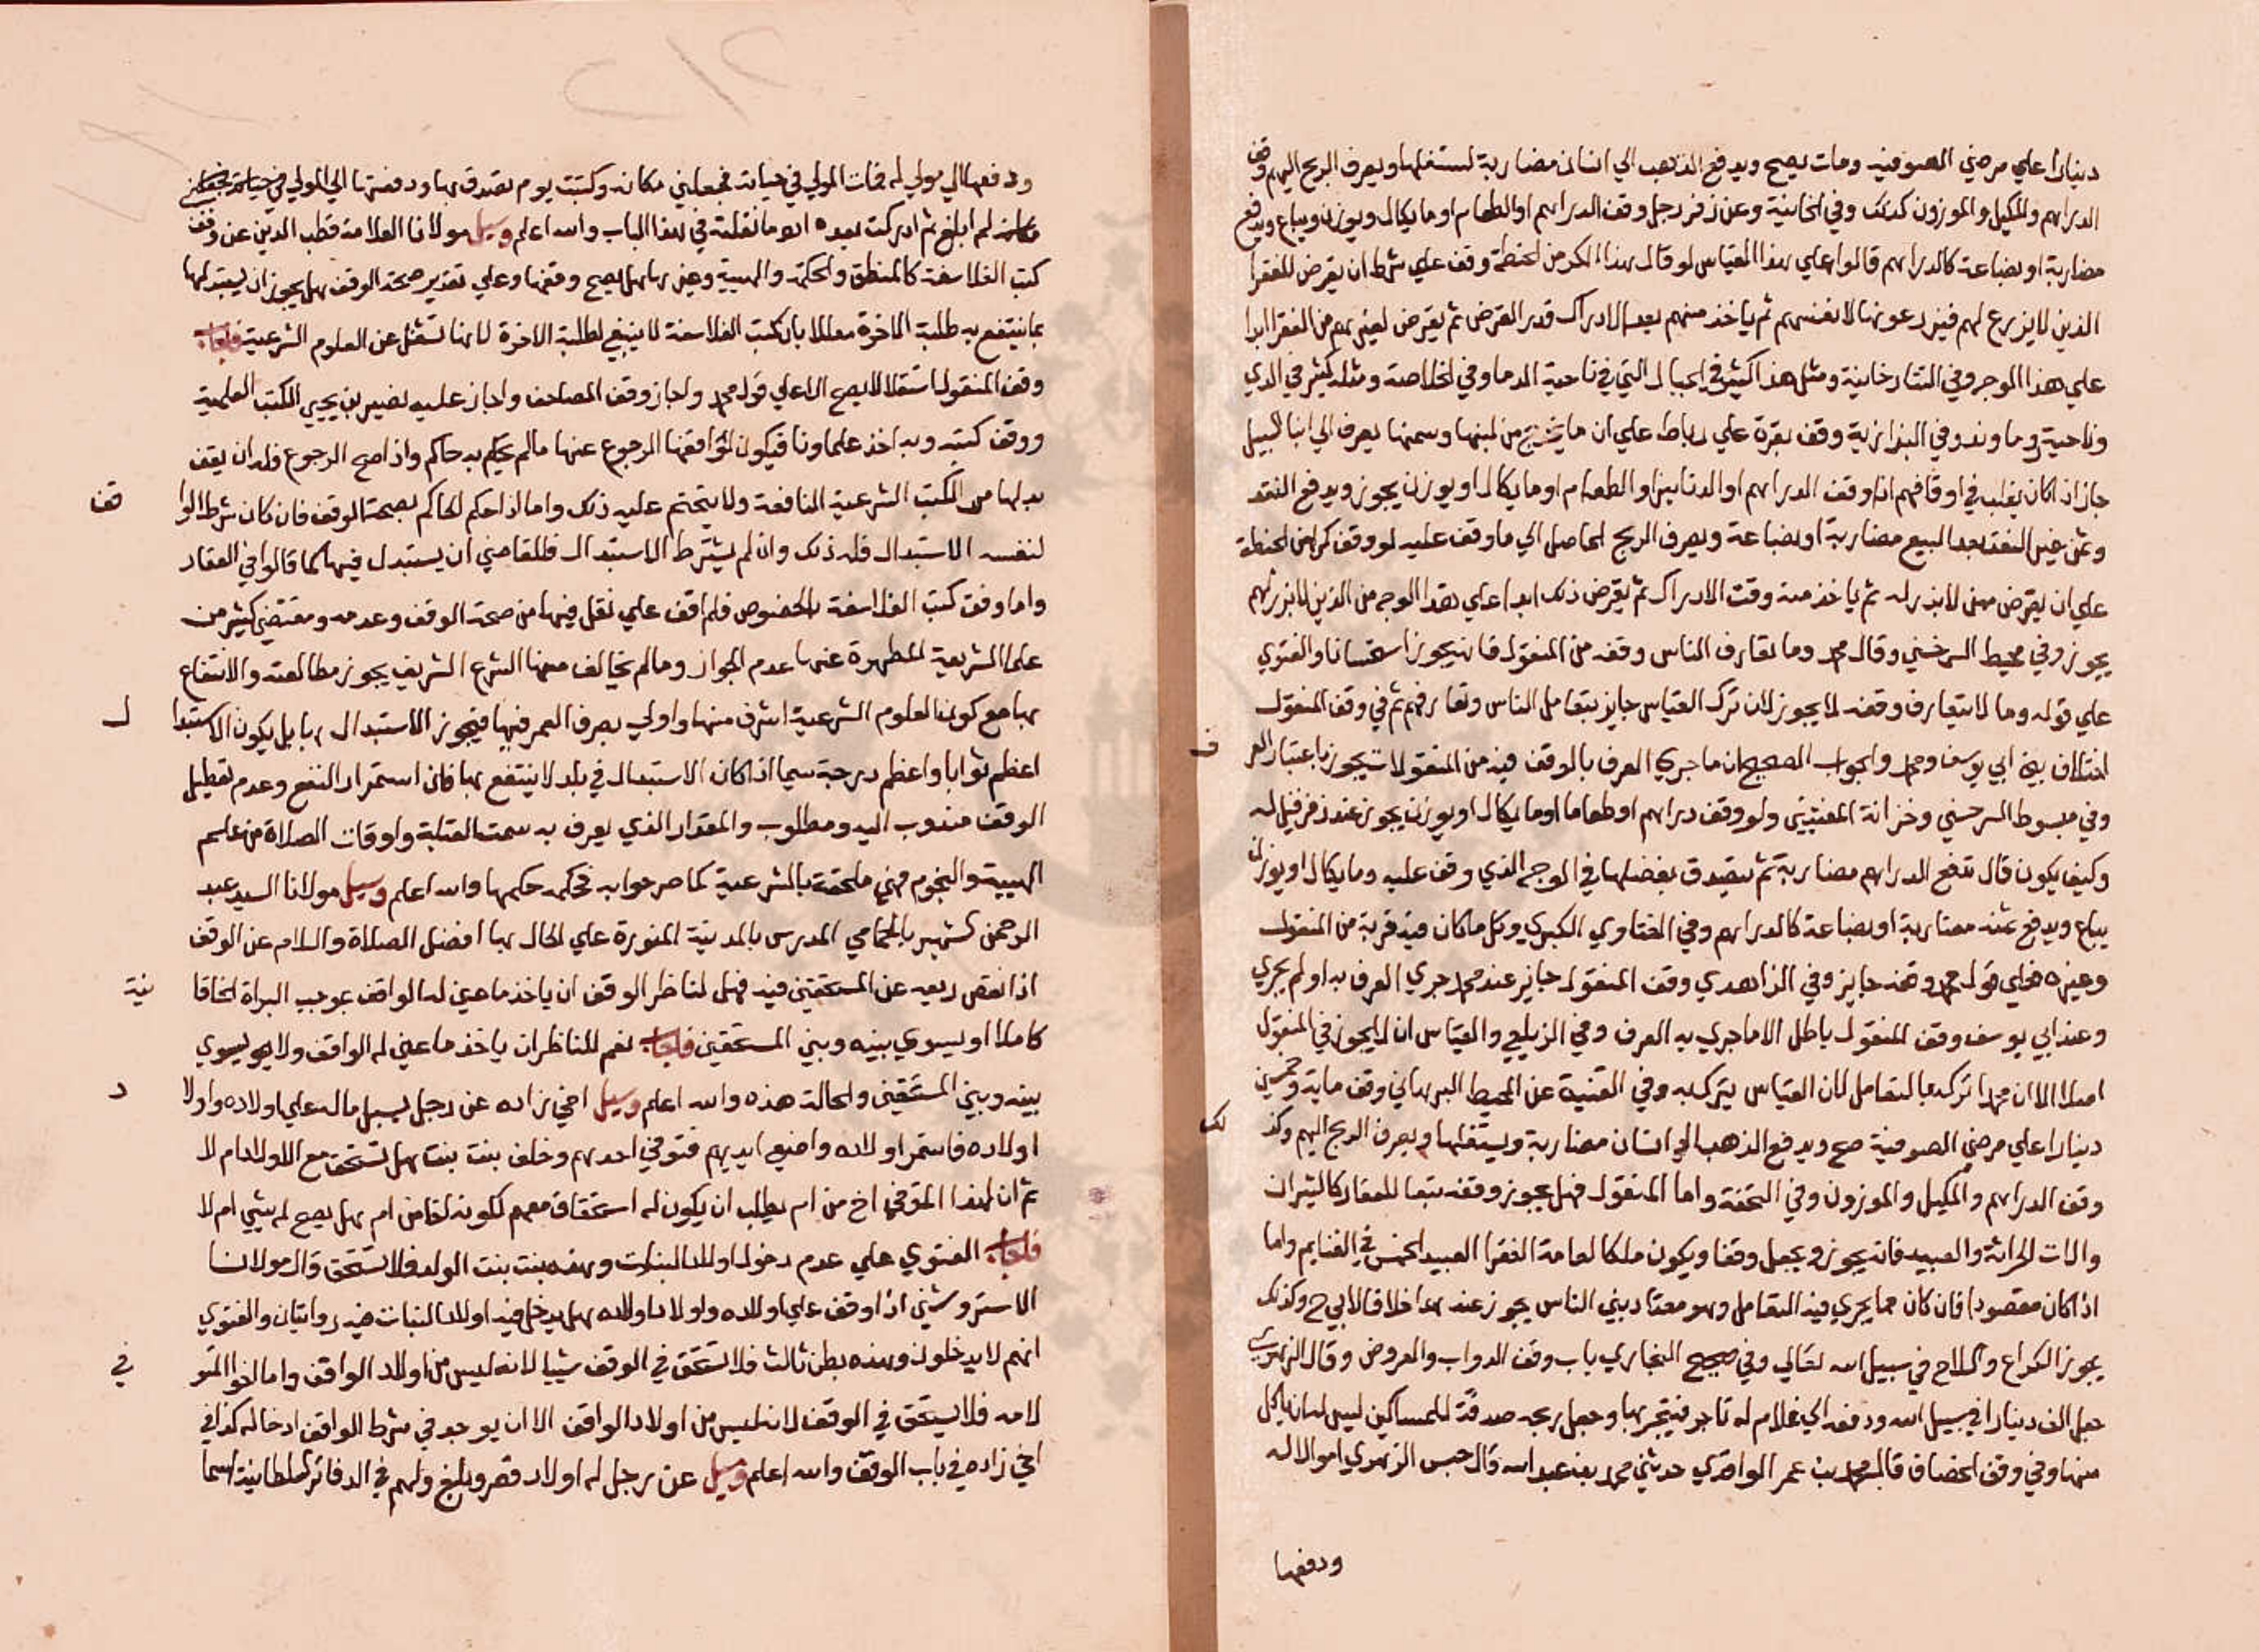 دينارا علي مرضي الصوفيه ومات يصح ويدفع الذهب الي انسان مضاربة يستغلها ويصرف الربح اليهم وقف
الدراهم والمكيل والموزون كذلك وفي الخانية وعن زفر رجل وقف الدراهم او الطعام او ما يكال ويوزن ويباع ويدفع
مضاربة او بضاعة كالدراهم قالوا علي هذا القياس لو قال هذا الكر من الحنطة وقف علي شرط ان يقرض للفقرا
الذين لا يزرع لهم فيزرعونها لانفسهم ثم ياخذ منهم بعد الادراك قدر القرض ثم يقرض لغيرهم من الفقرا ابدا
علي هذا الوجه وفي التتارخانية ومثل هذا كثير في الجبال التي في ناحية الدما وفي الخلاصة ومثله كثير في الري
وناحية دما وند وفي البزازية وقف بقرة علي رباط علي ان ما يخرج من لبنها وسمنها يصرف الي ابنا السبيل
جاز اذا كان يغلب في اوقافهم اذا وقف الدراهم او الدنانير او الطعام او ما يكال او يوزن يجوز ويدفع النقد
وثمن غير النقد بعد البيع مضاربة او بضاعة ويصرف الربح الحاصل الي ما وقف عليه لو وقف كرا من الحنطة
علي ان يقرض ممن لا بذر له ثم ياخذ منه وقت الادراك ثم يقرض ذلك ابدا علي هذا الوجه من الذين لا بذر لهم
يجوز وفي محيط السرخسي وقال محمد وما تعارف الناس وقفه من المنقول فانه يجوز استحسانا والفتوي
علي قوله وما لا يتعارف وقفه لا يجوز لان ترك القياس جايز بتعامل الناس وتعارفهم ثم في وقف المنقول
اختلاف بين ابي يوسف ومحمد والجواب الصحيح ان ما جري العرف بالوقف فيه من المنقولات يجوز باعتبار العر ف
وفي مبسوط السرخسي وخزانة المفتيين ولو وقف دراهم او طعاما او ما يكال او يوزن يجوز عند زفر قيل له
وكيف يكون قال تدفع الدراهم مضاربة ثم يتصدق بفضلها في الوجه الذي وقف عليه وما يكال او يوزن
يباع ويدفع ثمنه مضاربة او بضاعة كالدراهم وفي الفتاوي الكبري وكل ما كان فيه قربة من المنقول
وغيره فعلي قول محمد وقفه جايز وفي الزاهدي وقف المنقول جايز عند محمد جري العرف به او لم يجري
وعند ابي يوسف وقف المنقول باطل الا ما جري به العرف وفي الزيلعي والقياس ان لا يجوز في المنقول
اصلا الا ان محمدا تركه بالتعامل لان القياس يترك به وفي القنية عن المحيط البرهاني وقف ماية وخمسين
دينارا علي مرضي الصوفية صح ويدفع الذهب الي انسان مضاربة ويستغلها ويصرف الربح اليهم وكذ لك
وقف الدراهم والمكيل والموزون وفي التحفة واما المنقول فهل يجوز وقفه تبعا للعقار كالثيران
والات الحراثة والعبيد فانه يجوز ويجعل وقفا ويكون ملكا لعامة الفقرا العبيد الخمس في الغنايم واما
اذا كان مقصودا فان كان مما يجري فيه التعامل وهو معتاد بين الناس يجوز عند خلافا لابي ح وكذلك
يجوز الكراع والسلاح في سبيل الله تعالي وفي صحيح البخاري باب وقف الدواب والعروض وقال الزهري
جعل الف دينار في سبيل الله ودفعه الي غلام له تاجر فيتجر بها وجعل ربحه صدقة للمساكين ليس له ان ياكل
منها وفي وقف الخصاف قال محمد بن عمر الواقدي حدثني محمد بن عبد الله قال حبس الزهري اموالا له
ودفعها
ودفعها الي مولي له فمات المولي في حياته فجعلني مكانه وكتبت يوم تصدق بها ودفعتها الي المولي في حياته فجعلني
مكانه لم ابلغ ثم ادركت بعده ما نقلته في هذا الباب والله اعلم وسيل مولانا العلامة قطب الدين عن وقف
كتب الفلاسفة كالمنطق والحكمة والهيية وغيرها هل يصح وقفها وعلي تقدير صحة الوقف هل يجوز ان يستبدلها
بما ينتفع به طلبة الاخرة معللا بان كتب الفلاسفة لا ينبغي لطلبة الاخرة لانها تشغل عن العلوم الشرعية فاجاب
وقف المنقول استقلالا لا يصح الا علي قول محمد واجاز وقف المصاحف واجاز عليه نصير بن يحيي الكتب العلمية
ووقف كتبه وبه اخذ علماونا فيكون لواقفها الرجوع عنها مالم يحكم به حاكم واذا صح الرجوع فله ان يقف
بدلها من الكتب الشرعية النافعة ولا يتحتم عليه ذلك واما اذا حكم الحاكم بصحة الوقف فان كان شرط الوا قف
لنفسه الاستبدال فله ذلك وان لم يشترط الاستبدال فللقاضي ان يستبدل فيها كما قالوا في العقار
واما وقف كتب الفلاسفة بالخصوص فلم اقف علي نقل فيها من صحة الوقف وعدمه ومقتضي كثير من
علما الشريعة المطهرة عنها عدم الجواز ومالم يخالف منها الشرع الشريف يجوز مطالعته والانتفاع
بها مع كون العلوم الشرعية اشرف منها واولي بصرف العمر فيها فيجوز الاستبدال بها بل يكون الاستبدا ل
اعظم ثوابا واعظم درجة سيما اذا كان الاستبدال في بلد لا ينتفع بها فان استمرار النفع وعدم تعطيل
الوقف مندوب اليه ومطلوب والمقدار الذي يعرف به سمت القبلة واوقات الصلاة من علم
الهيية والنجوم فهي ملحقة بالشرعية كما صرحوا به فحكمه حكمها والله اعلم وسيل مولانا السيد عبد
الرحمن الشهير المدرس بالمدينة المنورة علي الحال بها افضل الصلاة والسلام عن الوقف
اذا نقص ريعه عن المستحقين فيه فهل لناظر الوقف ان ياخذ ما عين له الواقف بموجب البراة الخاقا نية
كاملا او يسوي بينه وبين المستحقين فاجاب نعم للناظر ان ياخذ ما عين له الواقف ولا يسوي
بينه وبين المستحقين والحالة هذه والله اعلم وسيل اخي زاده عن رجل يسبل ماله علي اولاده واولا د
اولاده فاستمر اولاده واضعي ايديهم فتوفي احدهم وخلف بنت بنت هل تستحق مع الاولاد ام لا
ثم ان لهذا المتوفي اخ من ام يطلب ان يكون له استحقاق معهم لكونه اخا من ام هل يصح له شي ام لا
فاجاب الفتوي علي عدم دخول اولاد البنات وهذه بنت بنت الولد فلا تستحق وقال مولانا
الاستروشني اذا وقف علي اولاده واولاد اولاده هل يدخل فيه اولاد البنات فيه روايتان والفتوي
انهم لا يدخلون وهذه بطن ثالث فلا تستحق في الوقف شيا لانه ليس من اولاد الواقف واما اخو المتو في
لامه فلا يستحق في الوقف لانه ليس من اولاد الواقف الا ان يوجد في شرط الواقف ادخاله كذا في
اخي زاده في باب الوقف والله اعلم وسيل عن رجل له اولاد قصر وبلغ ولهم في الدفاتر السلطانية اسما